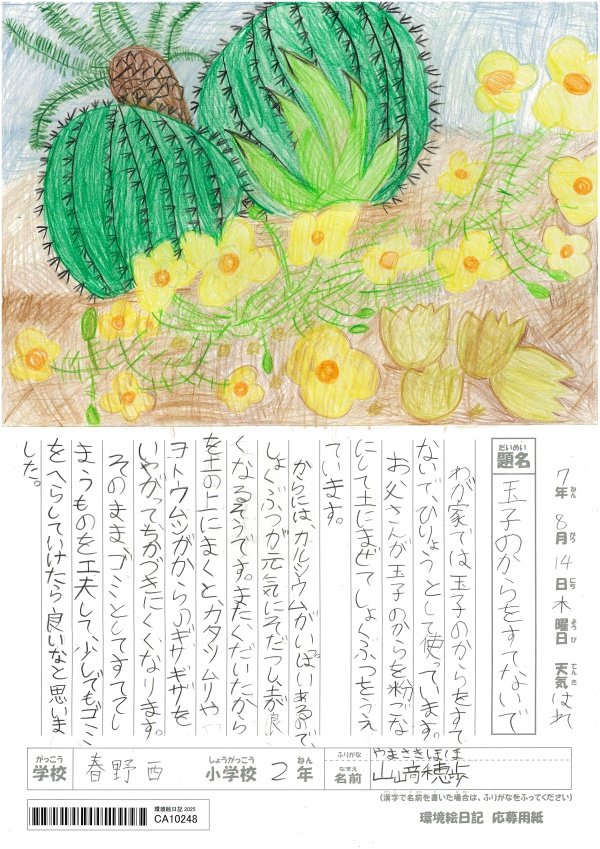 7年 8月 14日 木曜日 天気 はれ
ねん がつ にち ようび てんき
だいめい
題名 玉子のからをすてないで
わが家では玉子のからをすて
ないで、ひりょうとして使っています。
お父さんが玉子のからを粉ごな
にして土にまぜてしょくぶつをうえ
ています。
からには、カルシウムがいっぱいあるので、
しょくぶつが元気にそだつし、土が良
くなるそうです。またくだいたから
を土の上にまくと、カタツムリや
ヨトウムシがからのギザギザを
いやがって、ちかづきにくくなります。
そのまま、ゴミとしてすててし
まうものを工夫して、少しでもゴミ
をへらしていけたら良いなと思いま
した。
がっこう しょうがっこう ねん ふりがな やまさきほほ
学校 春野西 小学校 2年 なまえ 名前 山﨑穂歩
(漢字で名前を書いた場合は、ふりがなをふってください)
環境絵日記 2025
CA10248
環境絵日記 応募用紙